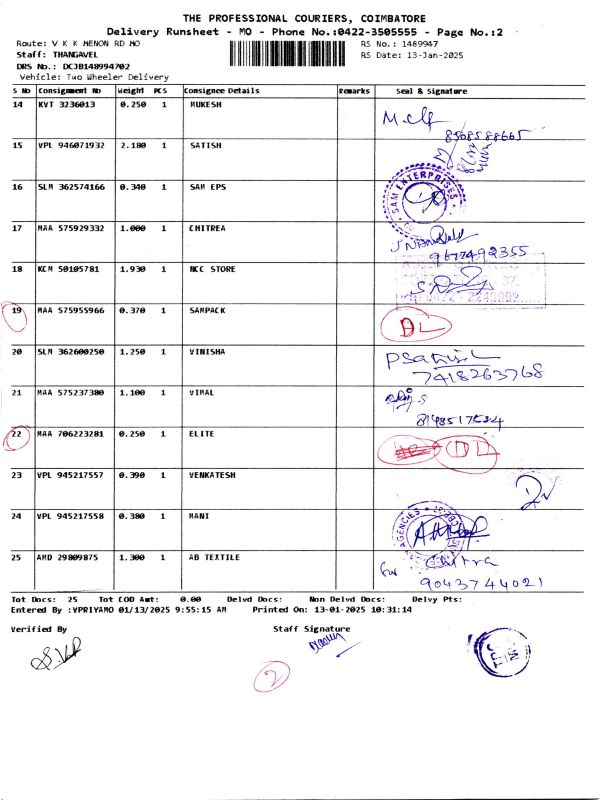 THE PROFESSIONAL COURIERS, COIMBATORE
Delivery Runsheet - MO - Phone No.:0422-3505555 - Page No.:2
Route: V K K MENON RD MO RS No.: 1489947
Staff: THANGAVEL RS Date: 13-Jan-2025
DRS No.: DCJB148994702
Vehicle: Two Wheeler Delivery
S No Consignment No Weight PCS Consignee Details Remarks Seal & Signature
14 KVT 3236013 0.250 1 MUKESH
8508588665
15 VPL 946071932 2.180 1 SATISH
16 SLM 362574166 0.340 1 SAM EPS SAM ENTERPRISES
17 MAA 575929332 1.000 1 CHITREA
9677492355
18 KCM 50105781 1.930 1 NCC STORE
19 MAA 575955966 0.370 1 SAMPACK DL
20 SLM 362600250 1.250 1 VINISHA
7418263768
21 MAA 575237380 1.100 1 VIMAL
22 MAA 706223281 0.250 1 ELITE DL
23 VPL 945217557 0.390 1 VENKATESH
24 VPL 945217558 0.380 1 MANI AGENCIES
25 AMD 29809875 1.300 1 AB TEXTILE for Chitra
9043744021
Tot Docs: 25 Tot COD Amt: 0.00 Delvd Docs: Non Delvd Docs: Delvy Pts:
Entered By :VPRIYAMO 01/13/2025 9:55:15 AM Printed On: 13-01-2025 10:31:14
Verified By Staff Signature
2